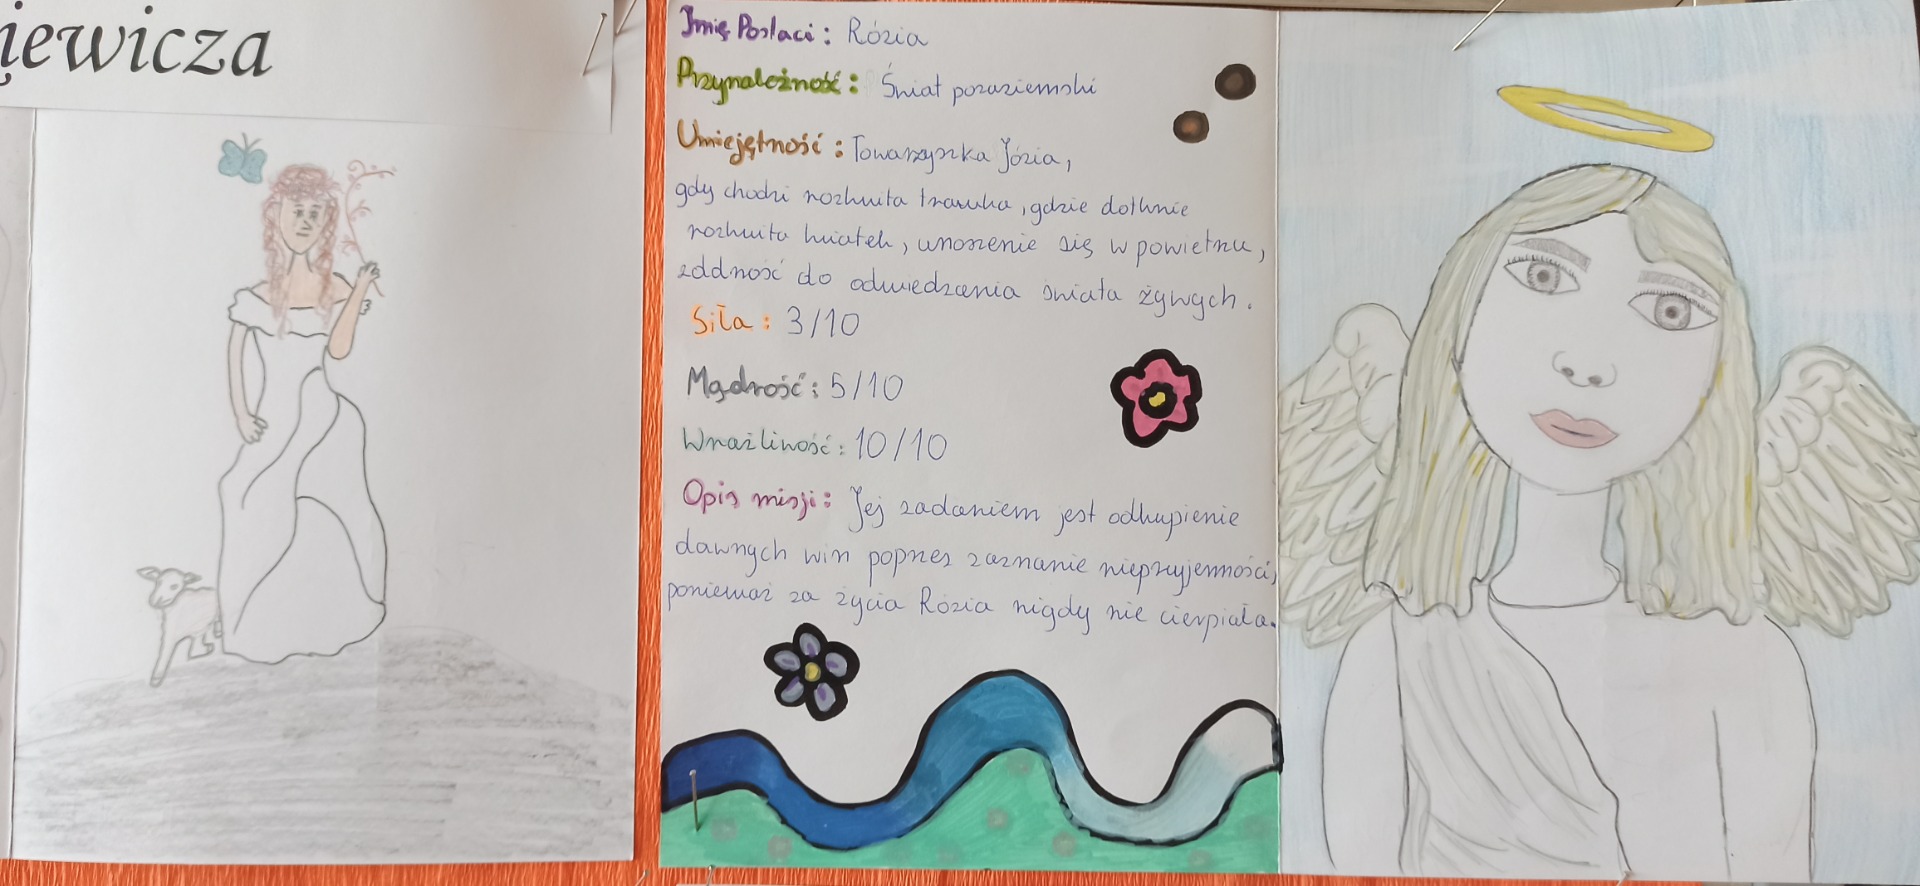 iewicza
Imię Postaci: Rózia
Przynależność: Świat pozaziemski
Umiejętność: Towarzyszka Józia,
gdy chodzi rozkwita trawka, gdzie dotknie
rozkwita kwiatek, unoszenie się w powietrzu,
zddność do odwiedzania świata żywych.
Siła: 3/10
Mądrość: 5/10
Wrażliwość: 10/10
Opis misji: Jej zadaniem jest odkupienie
dawnych win poprzez zaznanie nieprzyjemności,
ponieważ za życia Rózia nigdy nie cierpiała.